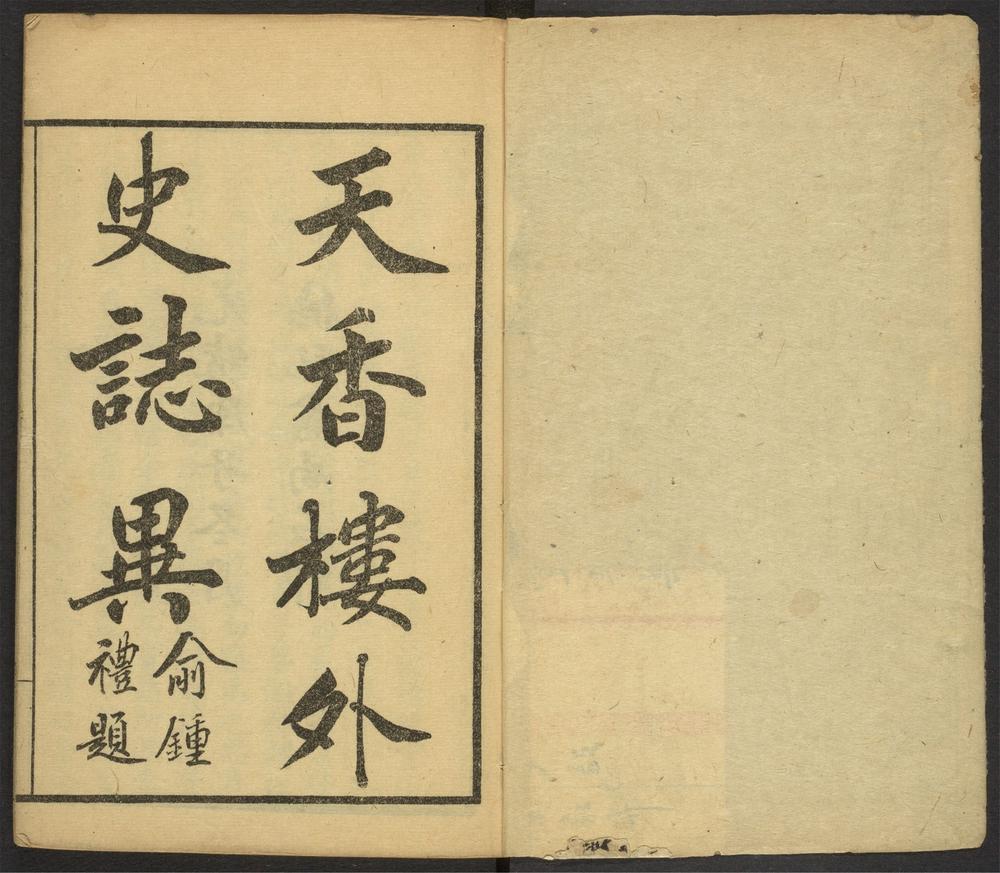 天香樓外
史誌異
俞鍾
禮題